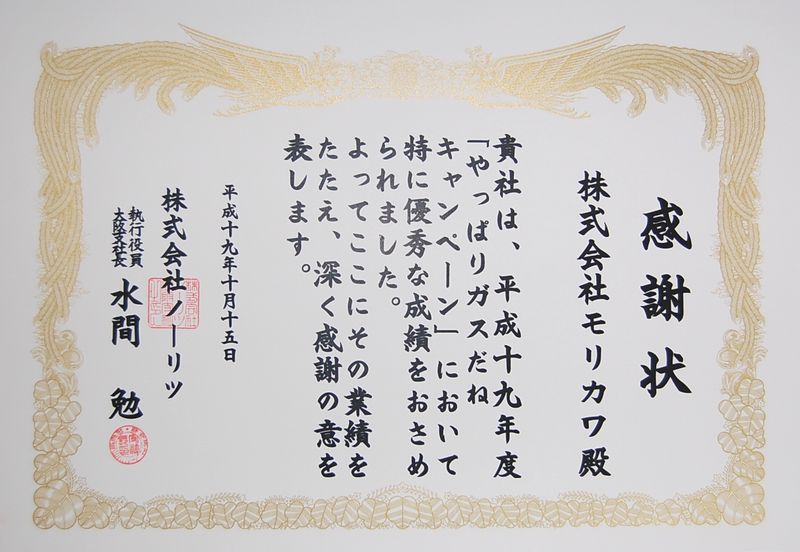 感謝状
株式会社モリカワ殿
貴社は、平成十九年度
「やっぱりガスだね
キャンペーン」において
特に優秀な成績をおさめ
られました。
よってここにその業績を
たたえ、深く感謝の意を
表します。
平成十九年十月十五日
株式会社ノーリツ
執行役員
大阪支社長
水間 勉